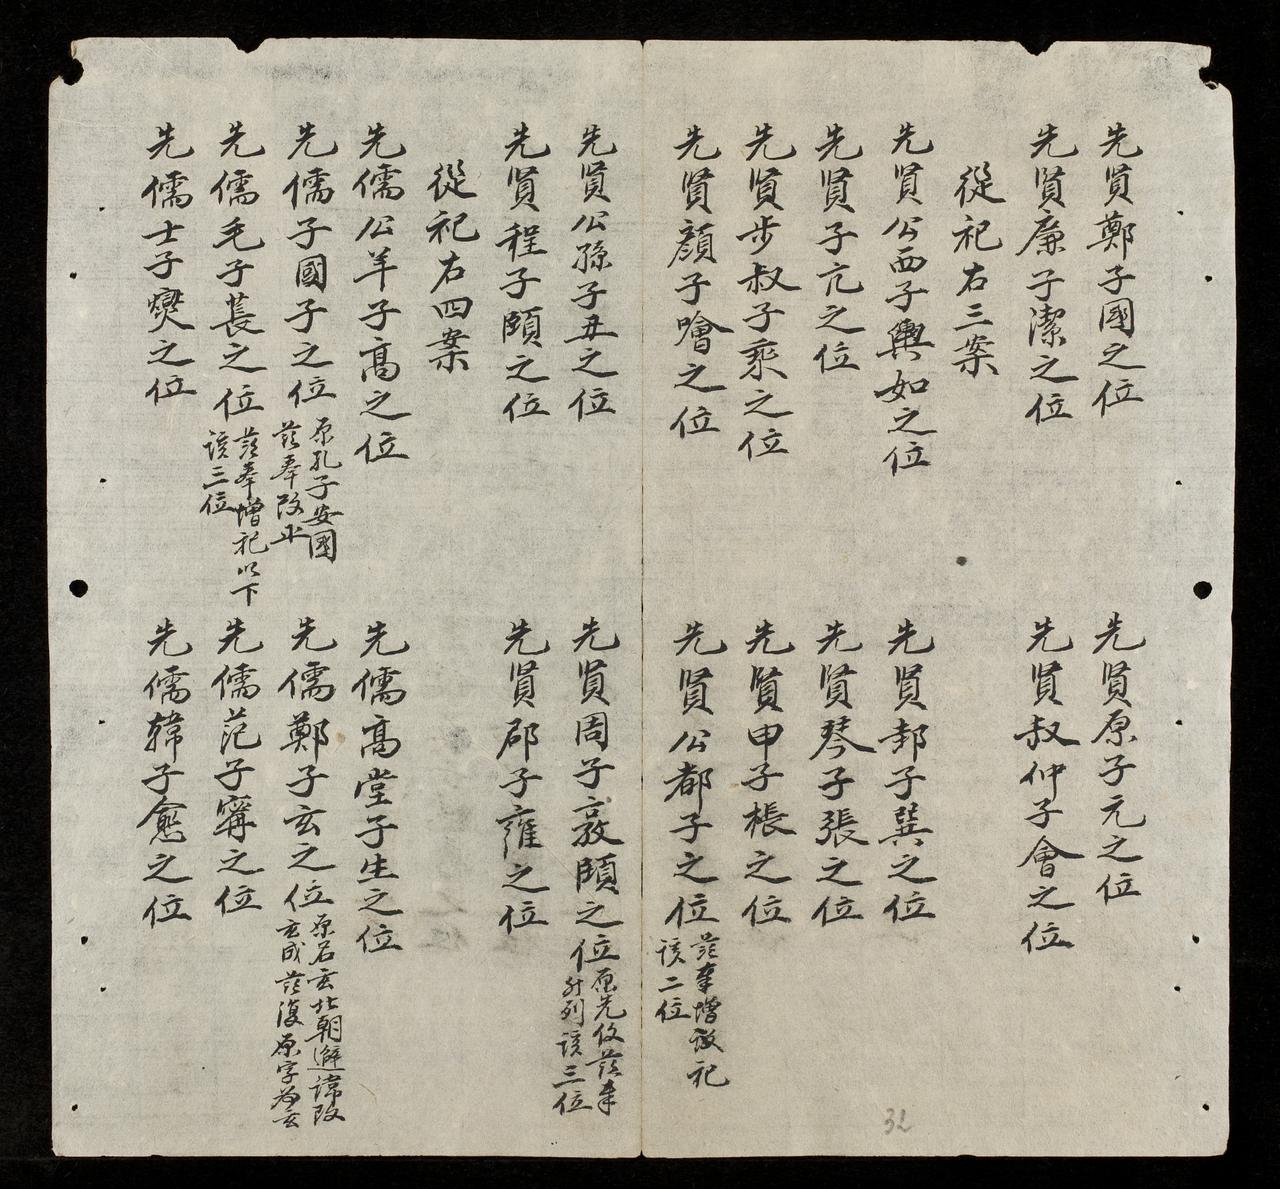 先賢鄭子國之位
先賢原子亢之位
先賢廉子潔之位
先賢叔仲子會之位
從祀右三案
先賢公西子輿如之位
先賢邽子巽之位
先賢子亢之位
先賢琴子張之位
先賢步叔子乘之位
先賢申子棖之位
先賢顏子噲之位
先賢公都子之位
茲奉增改祀
該二位
先賢公孫子丑之位
先賢周子敦頤之位
原先位茲奉
升列該三位
先賢程子頤之位
先賢邵子雍之位
從祀右四案
先儒公羊子高之位
先儒高堂子生之位
先儒子國子之位
原孔子安國
茲奉改正
先儒鄭子玄之位
原名玄北朝避諱改
玄成茲復原字為玄
先儒毛子萇之位
茲奉增祀以下
該三位
先儒范子寗之位
先儒士子燮之位
先儒韓子愈之位
32